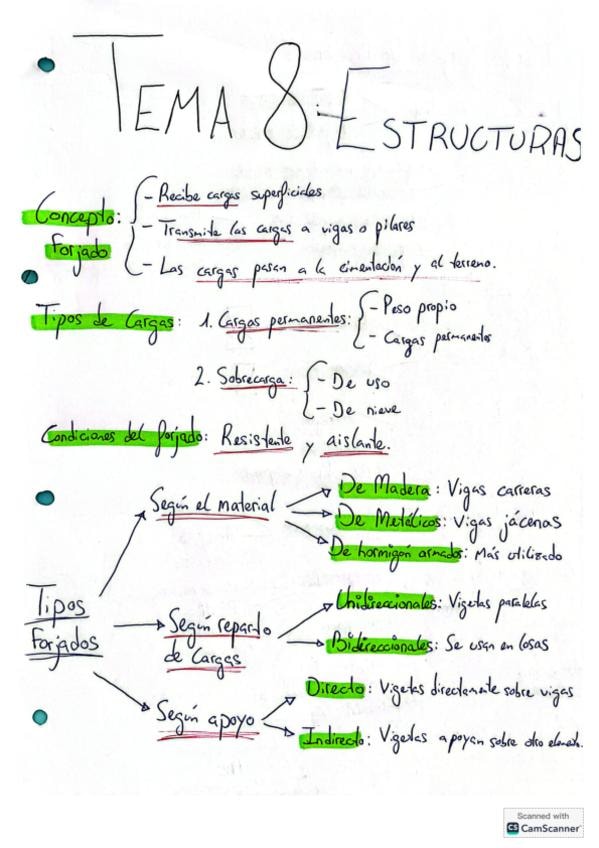 TEMA 8: ESTRUCTURAS
Concepto forjado:
- Recibe cargas superficiales
- Transmite las cargas a vigas o pilares
- Las cargas pasan a la cimentación y al terreno.
Tipos de Cargas: 1. Cargas permanentes:
- Peso propio
- Cargas permanentes
2. Sobrecarga:
- De uso
- De nieve
Condiciones del forjado: Resistente y aislante.
Tipos Forjados
Según el material
De Madera: Vigas carreras
De Metálicos: Vigas jácenas
De hormigón armados: Más utilizado
Según reparto de Cargas
Unidireccionales: Viguetas paralelas
Bidireccionales: Se usan en losas
Según apoyo
Directo: Viguetas directamente sobre vigas
Indirecto: Viguetas apoyan sobre otro elemento.
Scanned with
CS CamScanner